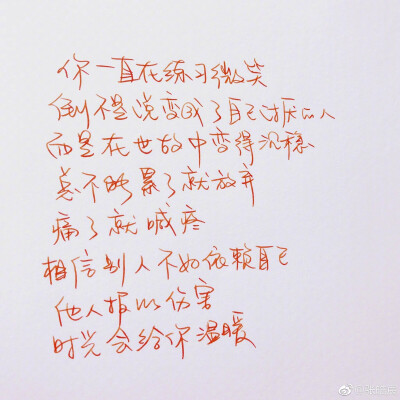 你一直在练习微笑
倒不是说变成了自己讨厌的人
而是在世故中变得沉稳
总不能累了就放弃
痛了就喊疼
相信别人不如依赖自己
他人报以伤害
时光会给你温暖